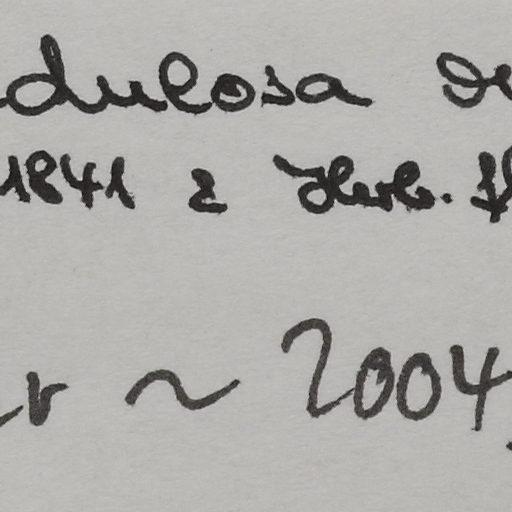 dulosa
1841 e Herb.
~ 2004